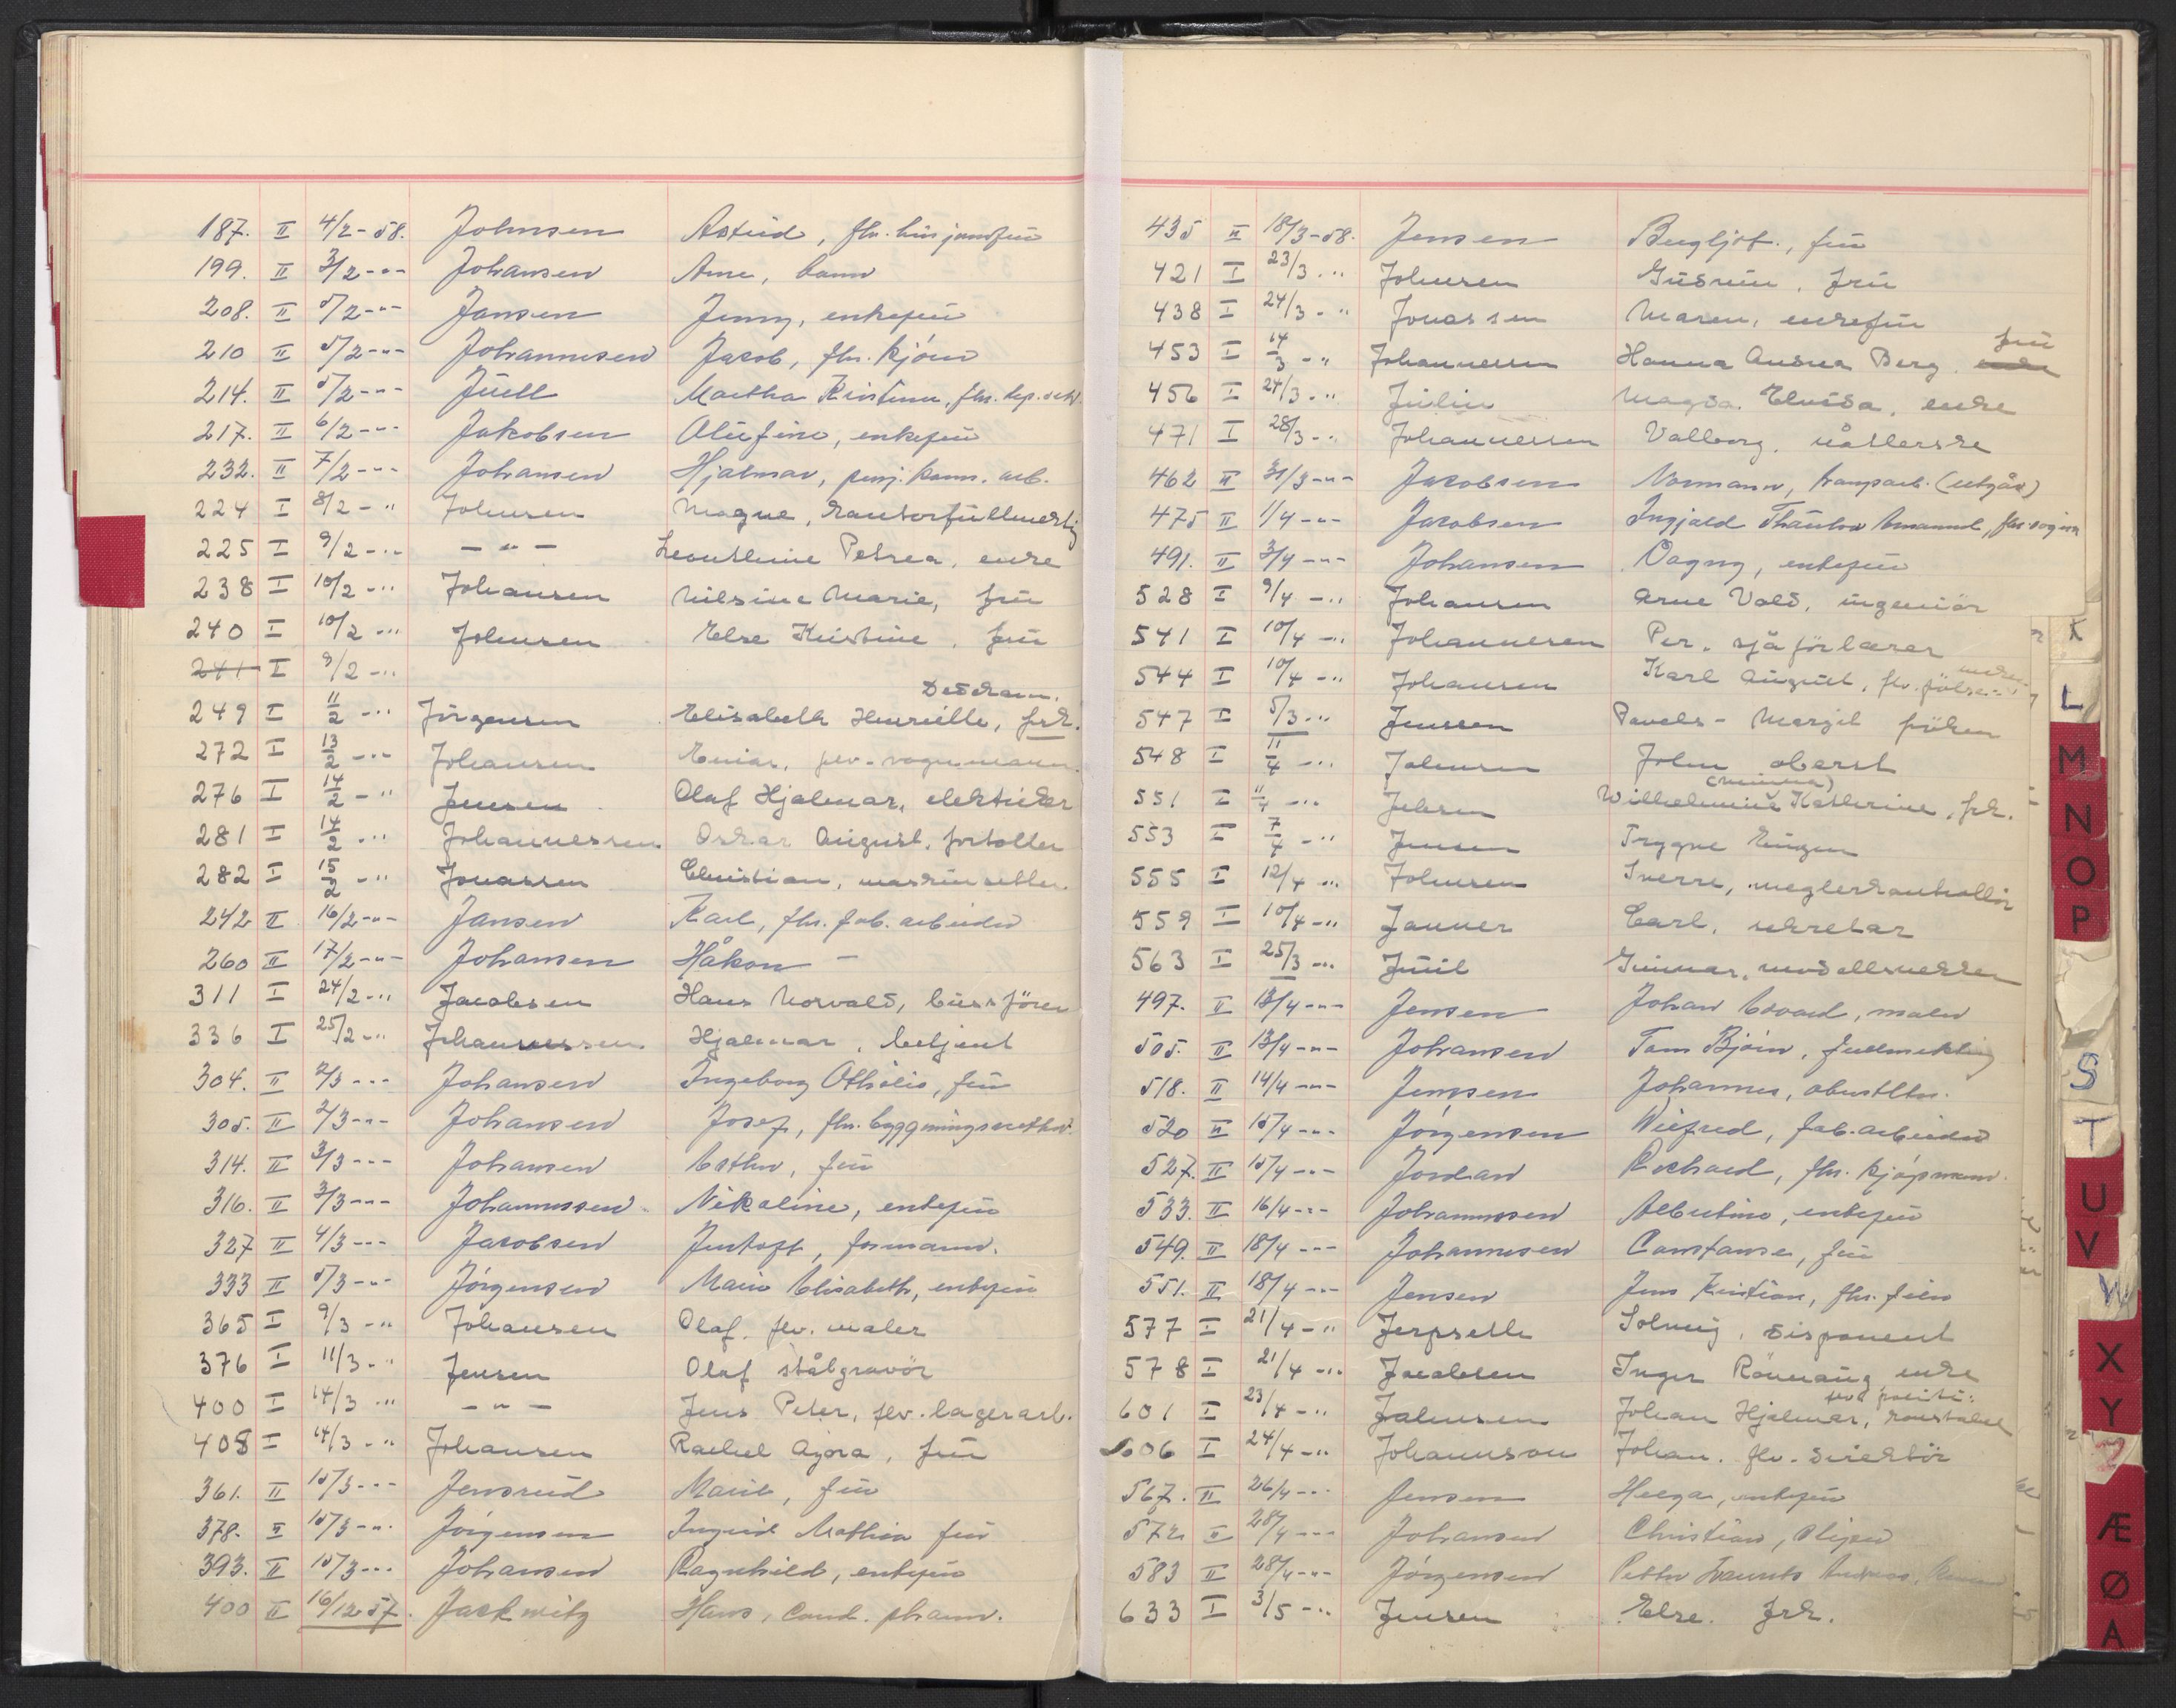 187. II 4/2-58. Johnsen Astrid, fhv. husjomfru
199. II 3/2-"- Johansen Arne, barn
208. II 5/2-"- Jansen Jenny, enkefru
210 II 5/2-"- Johannesen Jacob, fhv. kjøm
214. II 5/2-"- Juell Martha Kristine, fhv. lep.
217. II 6/2-"- Jakobsen Olufine, enkefru
232. II 7/2-"- Johansen Hjalmar, penj. komm. arb.
224 I 8/2-" Johnsen Magne, kontorfullmektig
225 I 9/2-" -"- Leonthine Petrea, enke
238 I 10/2-" Johansen Nilsine Marie, fru
240 I 10/2-" Johnsen Else Kristine, fru
241 I 9/2-"
249 I 11/2-" Jörgensen Elisabeth Henriette, frk.
272 I 13/2-" Johansen Einar, fhv. vognmann
276 I 14/2-" Jensen Olaf Hjalmar, elektriker
281 I 14/2-" Johannessen Oskar August, fortoller
282 I 15/2-" Jonassen Christian, maskinsetter
242 II 16/2-"- Jansen Karl, fhv. fab. arbeider
260 II 17/2-"- Johansen Håkon -
311 I 24/2-" Jacobsen Hans Norvald, bussförer
336 I 25/2-" Johannessen Hjalmar, betjent
304. II 2/3-"- Johansen Ingeborg Othilie, fru
305. II 2/3-"- Johansen Josef, fhv. byggningssnekker
314. II 3/3-"- Johansen Esther, fru
316. II 3/3-"- Johannessen Nikoline, enkefru
327 II 4/3-"- Jacobsen Jentoft, formann.
333 II 5/3-"- Jørgensen Marie Elisabeth, enkefru
365 I 9/3-" Johansen Olaf, fhv. maler
376 I 11/3-" Jensen Olaf stålgravör
400 I 14/3-" -"- Jens Peter, fhv. lagerarb.
408 I 14/3-" Johansen Rachel Agora, fru
361. II 15/3-"- Jensrud Marie, fru
378. II 15/3-"- Jørgensen Ingrid Mathea fru
393. II 15/3-"- Johansen Ragnhild, enkefru
400 II 16/12 57. Jackwitz Hans, cand. pharm.
435 II 18/3-58. Jensen Bergljot, fru
421 I 23/3-" Johnsen Gudrun, fru
438 I 24/3-" Jonassen Maren, enkefru
453 I 14/3-" Johannessen Hanna Andrea Berg. fru
456 I 24/3-" Julin Magda Elvida, enke
471 I 28/3-" Johannessen Valborg, våtlerske
462 II 31/3-"- Jacobsen Normann, transparb. (utgår)
475 II 1/4-"- Jacobsen Ingjald Emanuel,
491. II 3/4-"- Johansen Dagny, enkefru
528 I 9/4-" Johansen Arne Vald, ingeniör
541 I 10/4-" Johannesen Per, sjåförlærer
544 I 10/4-" Johansen Karl August, fhv.
547 I 5/3-" Jenssen Pavels- Margit fröken
548 I 11/4-" Johnsen John oberst
551 I 11/4-" Jebsen Wilhelmine (Minna) Kathrine, frk.
553 I 7/4-" Jensen Trygve Eugen
555 I 12/4-" Johnsen Sverre, meglerkontrollör
559 I 10/4-" Janner Carl, sekretær
563 I 25/3-" Juul Gunnar, modellsnekker
497. II 13/4-"- Jensen Johan Edvard, maler
505. II 13/4-"- Johansen Tom Bjørn, fullmektig
518. II 14/4-"- Jensen Johannes, oberstltn.
520 II 15/4-"- Jørgensen Wilfred, fab. arbeider
527. II 15/4-"- Jordan Richard, fhv. kjøpmann
533. II 16/4-"- Johannesen Albertine, enkefru
549. II 18/4-"- Johannesen Constanse, fru
551. II 18/4-"- Jensen Jens Kristian, fhv.
577 I 21/4-" Jerpseth Solveig, disponent
578 I 21/4-" Jacobsen Inger Rönnaug enke
601 I 23/4-" Johnsen Johan Hjalmar, fhv politi-konstabel
606 I 24/4-" Johannson Johan, fhv. direktör
567. II 26/4-"- Jensen Helga, enkefru
572. II 28/4-"- Johansen Christian, sliper
583 II 28/4-"- Jørgensen Petter Laurits Andreas,
633 I 3/5-" Jensen Else. frk.
K
L
M
N
O
P
S
T
U
V
W
X
Y
Z
Æ
Ø
A